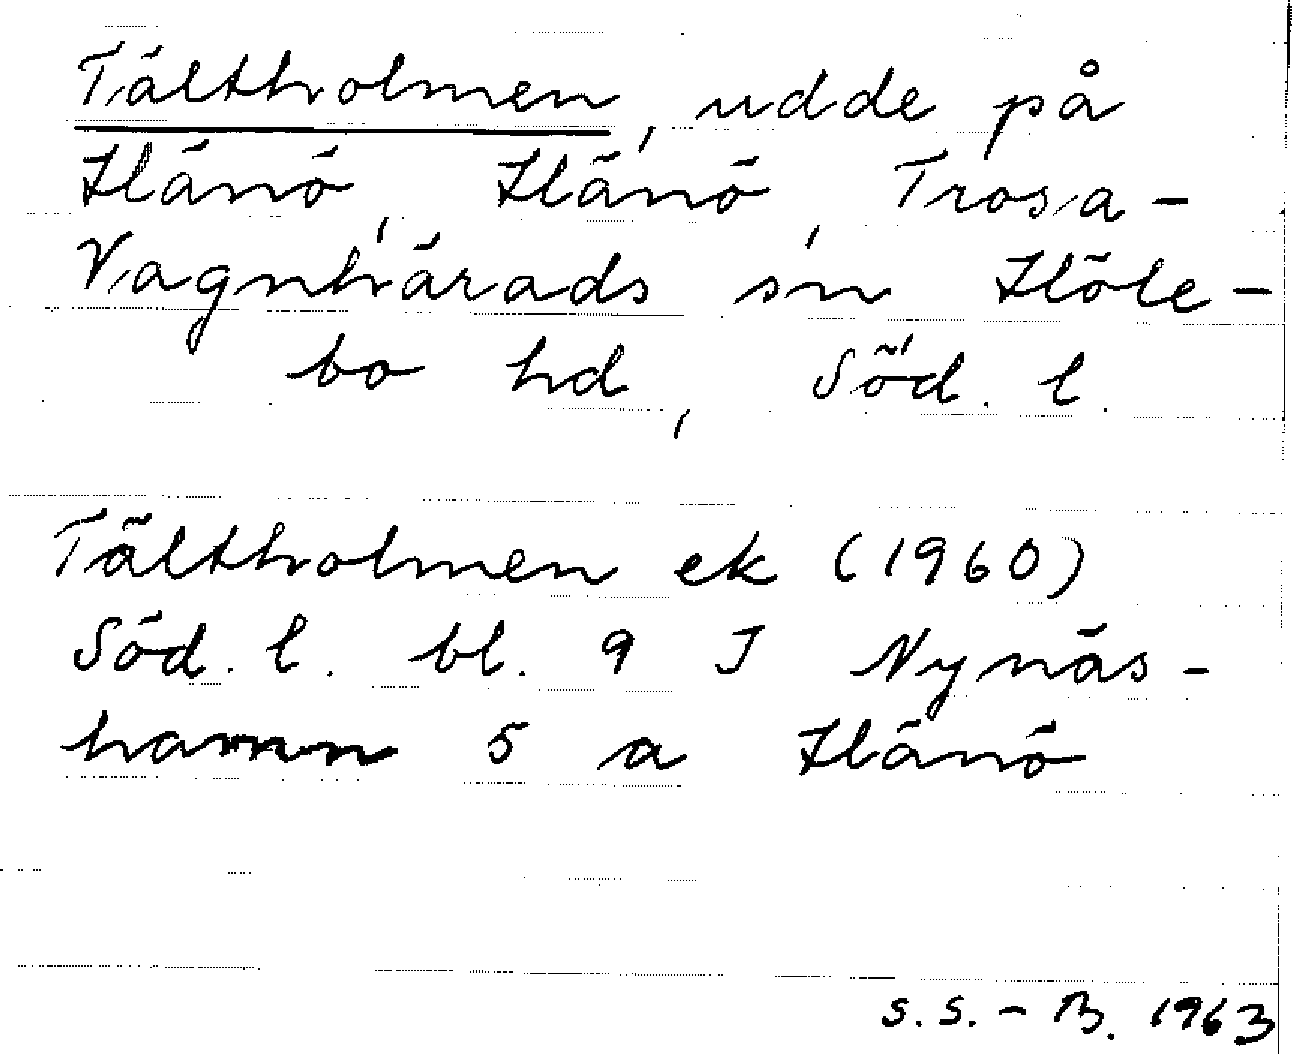 Tältholmen, udde på
Hånö, Hånö, Trosa-
Vagnhärads sn Höle-
bo hd, Söd. l.
Tältholmen ek (1960)
Söd. l. bl. 9 I Nynäs-
hamn 5 a Hånö
S.S.-B. 1963